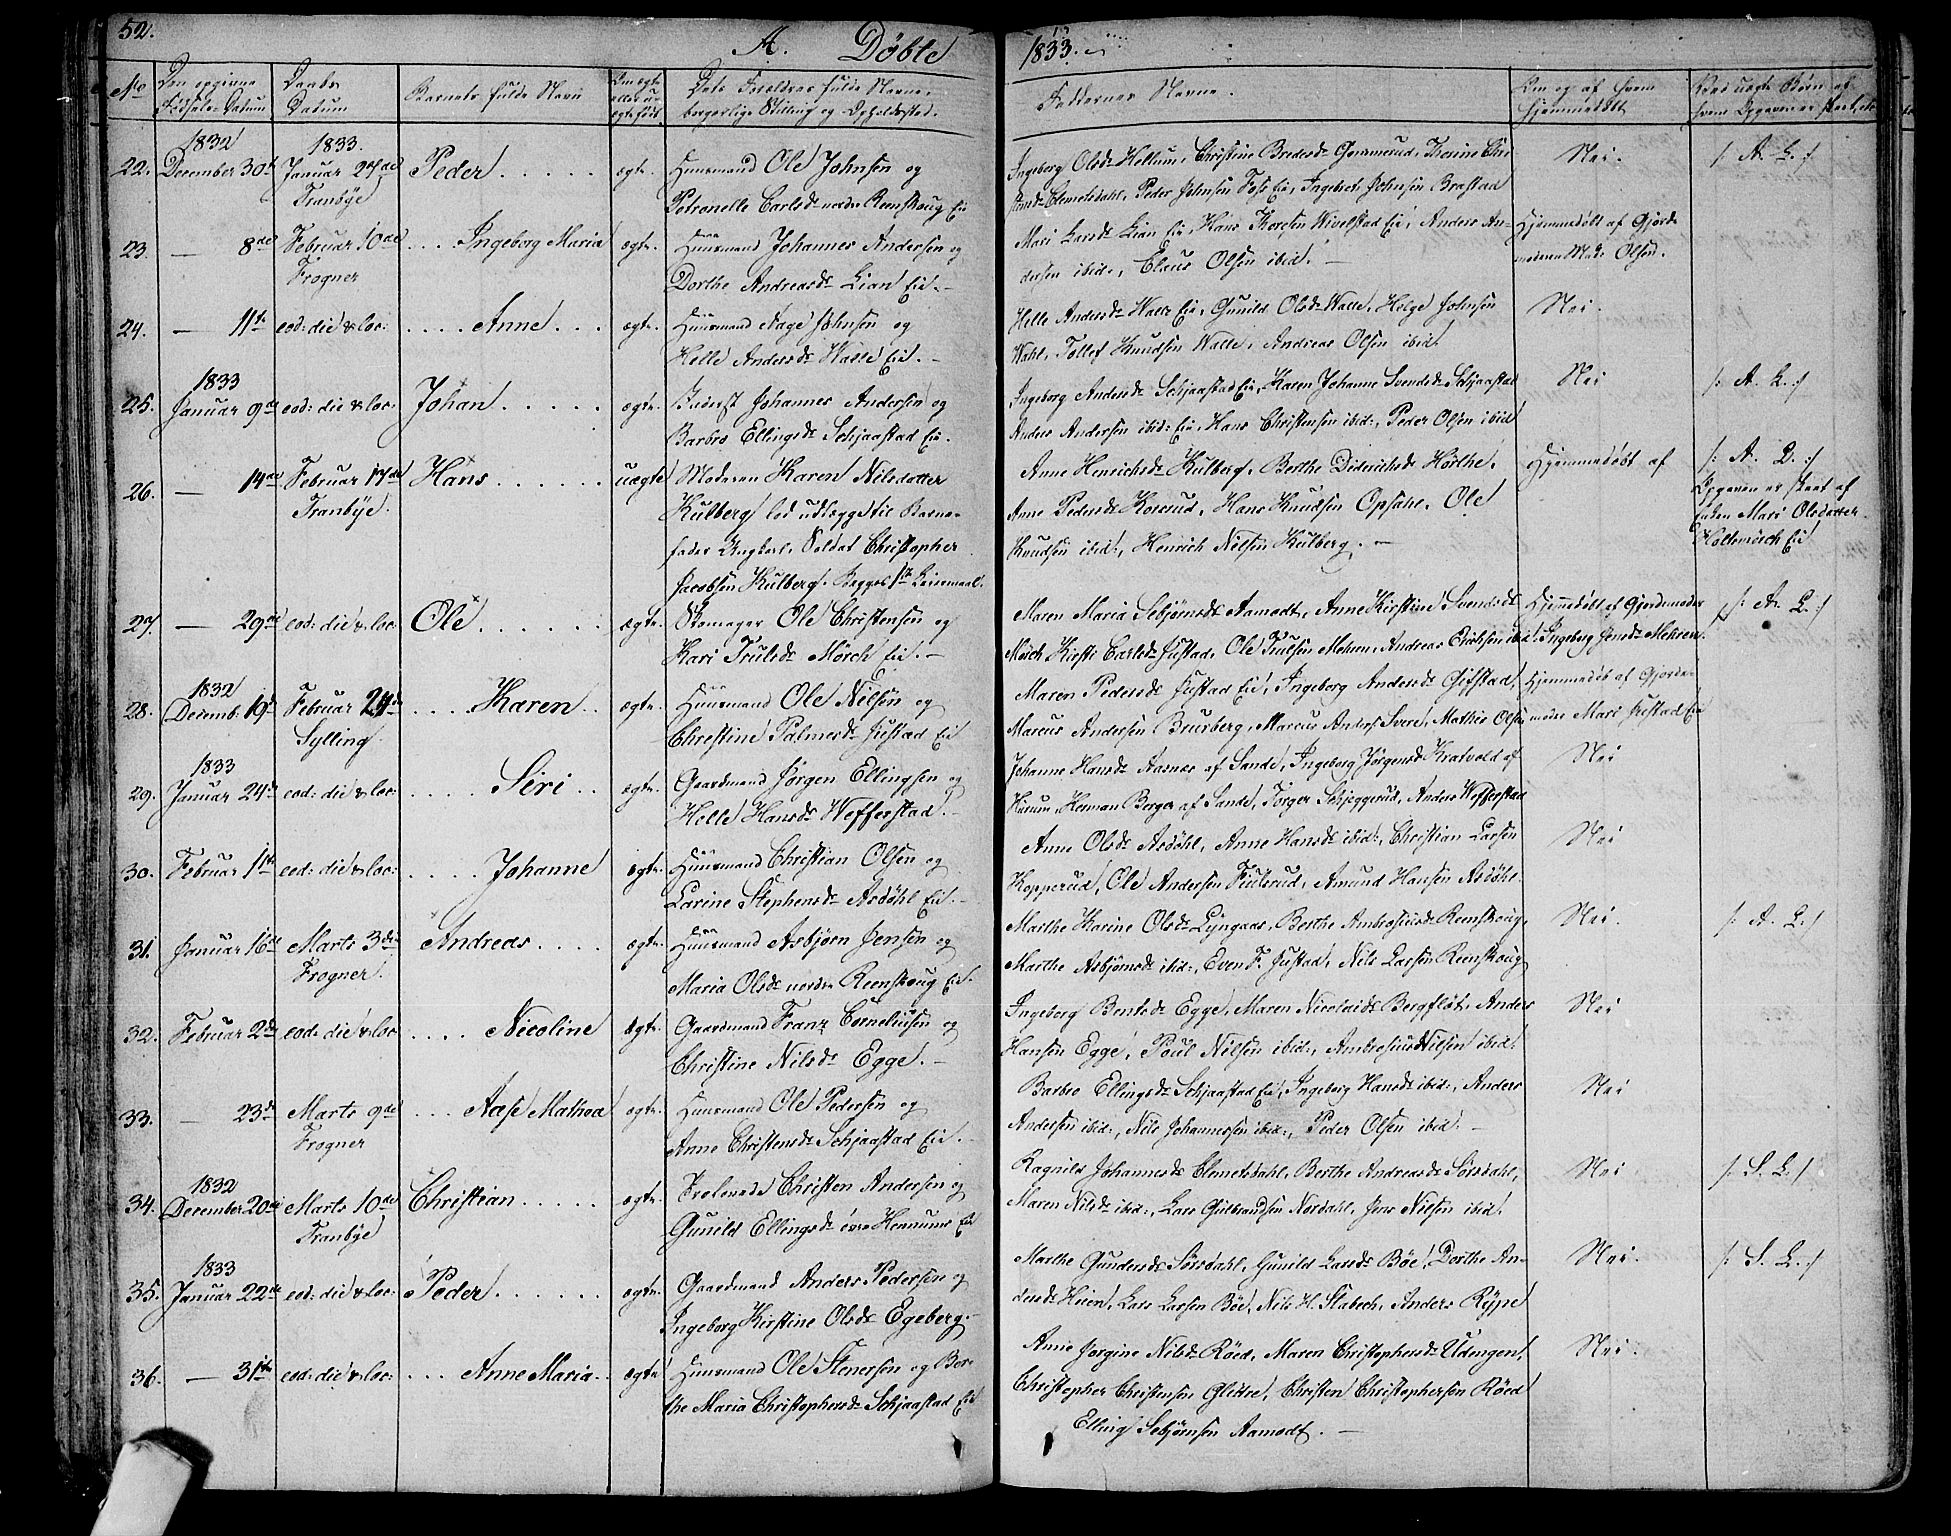 52.
A. Døbte
1833.
No
Den opgivne Fødsels-Datum
Daabs Datum
Barnets fulde Navn
Om ægte eller uægtefødt
Dets Forældres fulde Navne, borgerlige Stilling og Opholdssted.
Faddernes Navne.
Om og af hvem hjemmedøbt
Ved uægte Børn af hvem Opgaven er skeet, etc
1832
1833.
22. December 30te Januar 27de Peder . . . . . ægte. Huusmand Ole Johnsen og
Tranbye
Petronelle Carlsdr nordre Reenskoug Eie
Ingeborg Olsdr Hellum, Christine Bredesdr Gommerud, Karine Chri
stensdr Clemetsdahl, Peder Johnsen Foss Eie, Ingebret Johnsen Brastad
Nei.
/: A. L. :/
23. — 8de Februar 10de . . . Ingeborg Maria ægte. Huusmand Johannes Andersen og
Frogner
Dorthe Andreasdr Lian Eie. —
Mari Larsdr Lian Eie, Hans Wivelstad Eie, Anders An-
dersen ibid:, Claus Olsen ibid: —
Hjemmedøbt af Gjorde
moderen Mad: Olsen.
24. — 11te eod: die & loc: . . . . Anne . . . ægte. Huusmand Aage Johnsen og
Helle Andersdr Walle Eie. —
Helle Andersdr Walle Eie, Gunild Olsdr Walle, Helge Johnsen
Wahl, Tollef Knudsen Walle, Andreas Olsen ibid:
Nei.
1833
25. Januar 9de eod: die & loc: Johan . . . . . ægte. Inderst Johannes Andersen og
Barbro Ellingsdr Schjaastad Eie.
Ingeborg Andersdr Schjaastad Eie, Karen Johanne Svendsdr Schjaastad
Anders Andersen ibid: Eie, Hans Christensen ibid:, Peder Olsen ibid
Nei
/: A. L. :/
26. — 14de Februar 17de Hans . . . . . . uægte Moderen Karen Nilsdatter
Tranbye.
Kulberg lod udlægge til Barne-
fader Ungkarl, Soldat Christopher
Jacobsen Kulberg. Begges 1ste Leiermaal.
Anne Henrichsdr Kulberg, Berthe Diderichsdr Hørthe,
Anne Pedersdr Korerud, Hans Knudsen Opsahl, Ole
Knudsen ibid:, Henrich Nilsen Kulberg. —
Hjemmedøbt af
/: A. L. :/
Opgaven er skeet af
Enken Mari Olsdatter
Holtsmoch Eie
27. — 29de eod: die & loc: Ole . . . . . . ægte. Skomager Ole Christensen og
Kari Trulsdr Mørch Eie. —
Maren Maria Sebjørnsdr Aamodt, Anne Kirstine Svendsdr
Mørch, Kirsti Carlsdr Justad, Ole Trulsen Mehren, Andreas Erichsen ibid:
Hjemdøbt af Gjordemoder
Ingeborg Jensdr Mehren
/: A. L. :/
1832
28. Decemb. 19de Februar 24de . . . . Karen . . ægte. Huusmand Ole Nilsen og
Sylling.
Christine Palmesdr Justad Eie
Maren Pedersdr Justad Eie, Ingeborg Andersdr Gifstad,
Marcus Andersen Brusberg, Marcus Anders: Svere, Mathis Olsen
Hjemmedøbt af Gjorde-
modre Mari Justad Eie
1833
29. Januar 24de eod: die & loc: . . . . Siri . . ægte. Gaardmand Jørgen Ellingsen og
Helle Hansdr Wefferstad. —
Johanne Hansdr Aasnæs af Sande, Ingeborg Jørgensdr Kratvold af
Hurum, Herman Berger af Sande, Torger Schjeggerud, Anders Wefferstad
Nei
30. Februar 1ste eod: die & loc: . . . . Johanne ægte. Huusmand Christian Olsen og
Larine Stephensdr Asdøhl Eie. —
Anne Olsdr Asdøhl, Anne Hansdr ibid:, Christian Larsen
Kopperud, Ole Andersen Fiulsrud, Amund Hansen Asdøhl.
Nei
31. Januar 16de Marts 3die Andreas . . . . ægte. Huusmand Asbjørn Jensen og
Frogner
Maria Olsdr nordre Reenskoug Eie.
Marthe Karine Olsdr Lyngaas, Berthe Ambrosiusdr Reenskoug,
Marthe Asbjørnsdr ibid:, Even F. Justad, Nils Larsen Reenskoug
Nei.
/: A. L. :/
32. Februar 2den eod: die & loc: . . . . Nicoline ægte. Gaardmand Franz Corneliusen og
Christine Nilsdr Egge. —
Ingeborg Bentsdr Egge, Maren Nicolaidr Bergfløt, Anders
Hansen Egge, Poul Nilsen ibid:, Ambrosius Nilsen ibid:
Nei
33. — 23de Marts 9de . . . Aase Mathea ægte. Huusmand Ole Pedersen og
Frogner
Anne Christensdr Schjaastad Eie. —
Barbro Ellingsdr Schjaastad Eie, Ingeborg Hansdr ibid:, Anders
Andersen ibid:, Nils Johannesen ibid:, Peder Olsen ibid: —
Nei
1832
34. December 20de Marts 10de Christian . . . . . ægte. Christen Andersen og
Tranbye
Gunild Ellingsdr øvre Hennum Eie
Ragnild Johannesdr Clemetsdahl, Berthe Andreasdr Sørsdahl,
Maren Nilsdr ibid:, Lars Gulbrandsen Nordahl, Jens Nielsen ibid:
Nei
/: S. L. :/
1833
35. Januar 22de eod: die & loc: Peder . . . . . . ægte. Gaardmand Anders Pedersen og
Ingeborg Kirstine Olsdr Egeberg. —
Marthe Gundersdr Sørsdahl, Gunild Larsdr Bøe, Dorthe An-
dersdr Heien, Lars Larsen Bøe, Nils H. Stabech, Anders Rype
Nei.
/: S. L. :/
36. — 31te eod: die & loc: . . . Anne Maria . . ægte Huusmand Ole Stenersen og Ber-
the Maria Christophersdr Schjaastad Eie
Anne Jorgine Nilsdr Røed, Maren Christophersdr Udengen,
Christopher Christensen Glittre, Christen Christophersen Røed
Elling Sebjørnsen Aamodt. —
Nei.